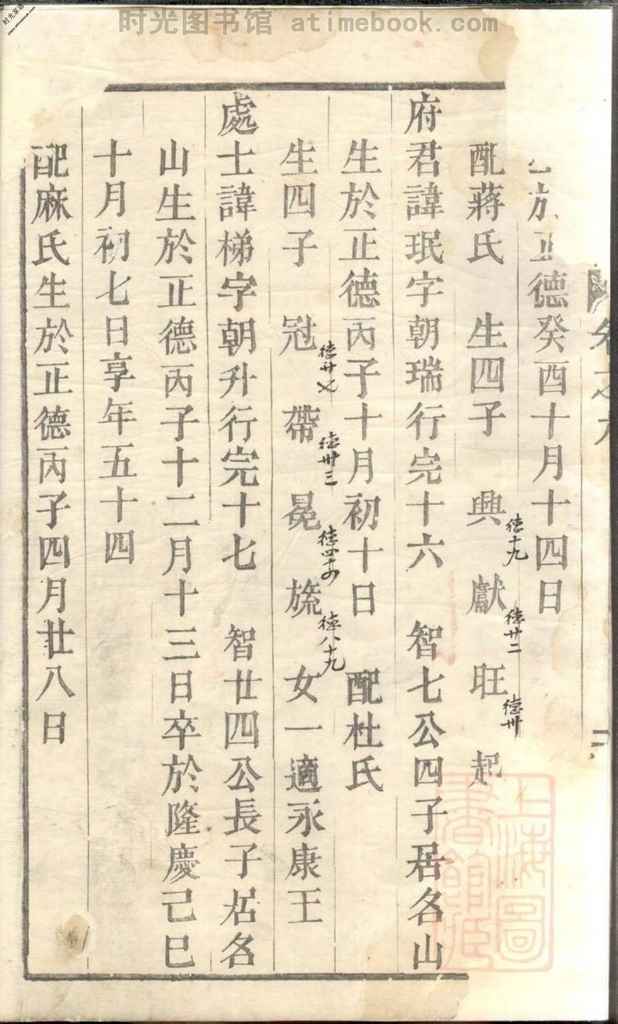 时光图书馆 atimebook.com
於正德癸酉十月十四日
配蔣氏 生四子 興 德十九 獻 德廿二 旺 德卅 起
府君諱珉字朝瑞行完十六 智七公四子居名山
生於正德丙子十月初十日 配杜氏
生四子 冠 德廿七 帶 德卅三 冕 旒 德八十九 女一適永康王
處士諱梯字朝升行完十七 智廿四公長子居名
山生於正德丙子十二月十三日卒於隆慶己巳
十月初七日享年五十四
配麻氏生於正德丙子四月廿八日
上海圖書館藏